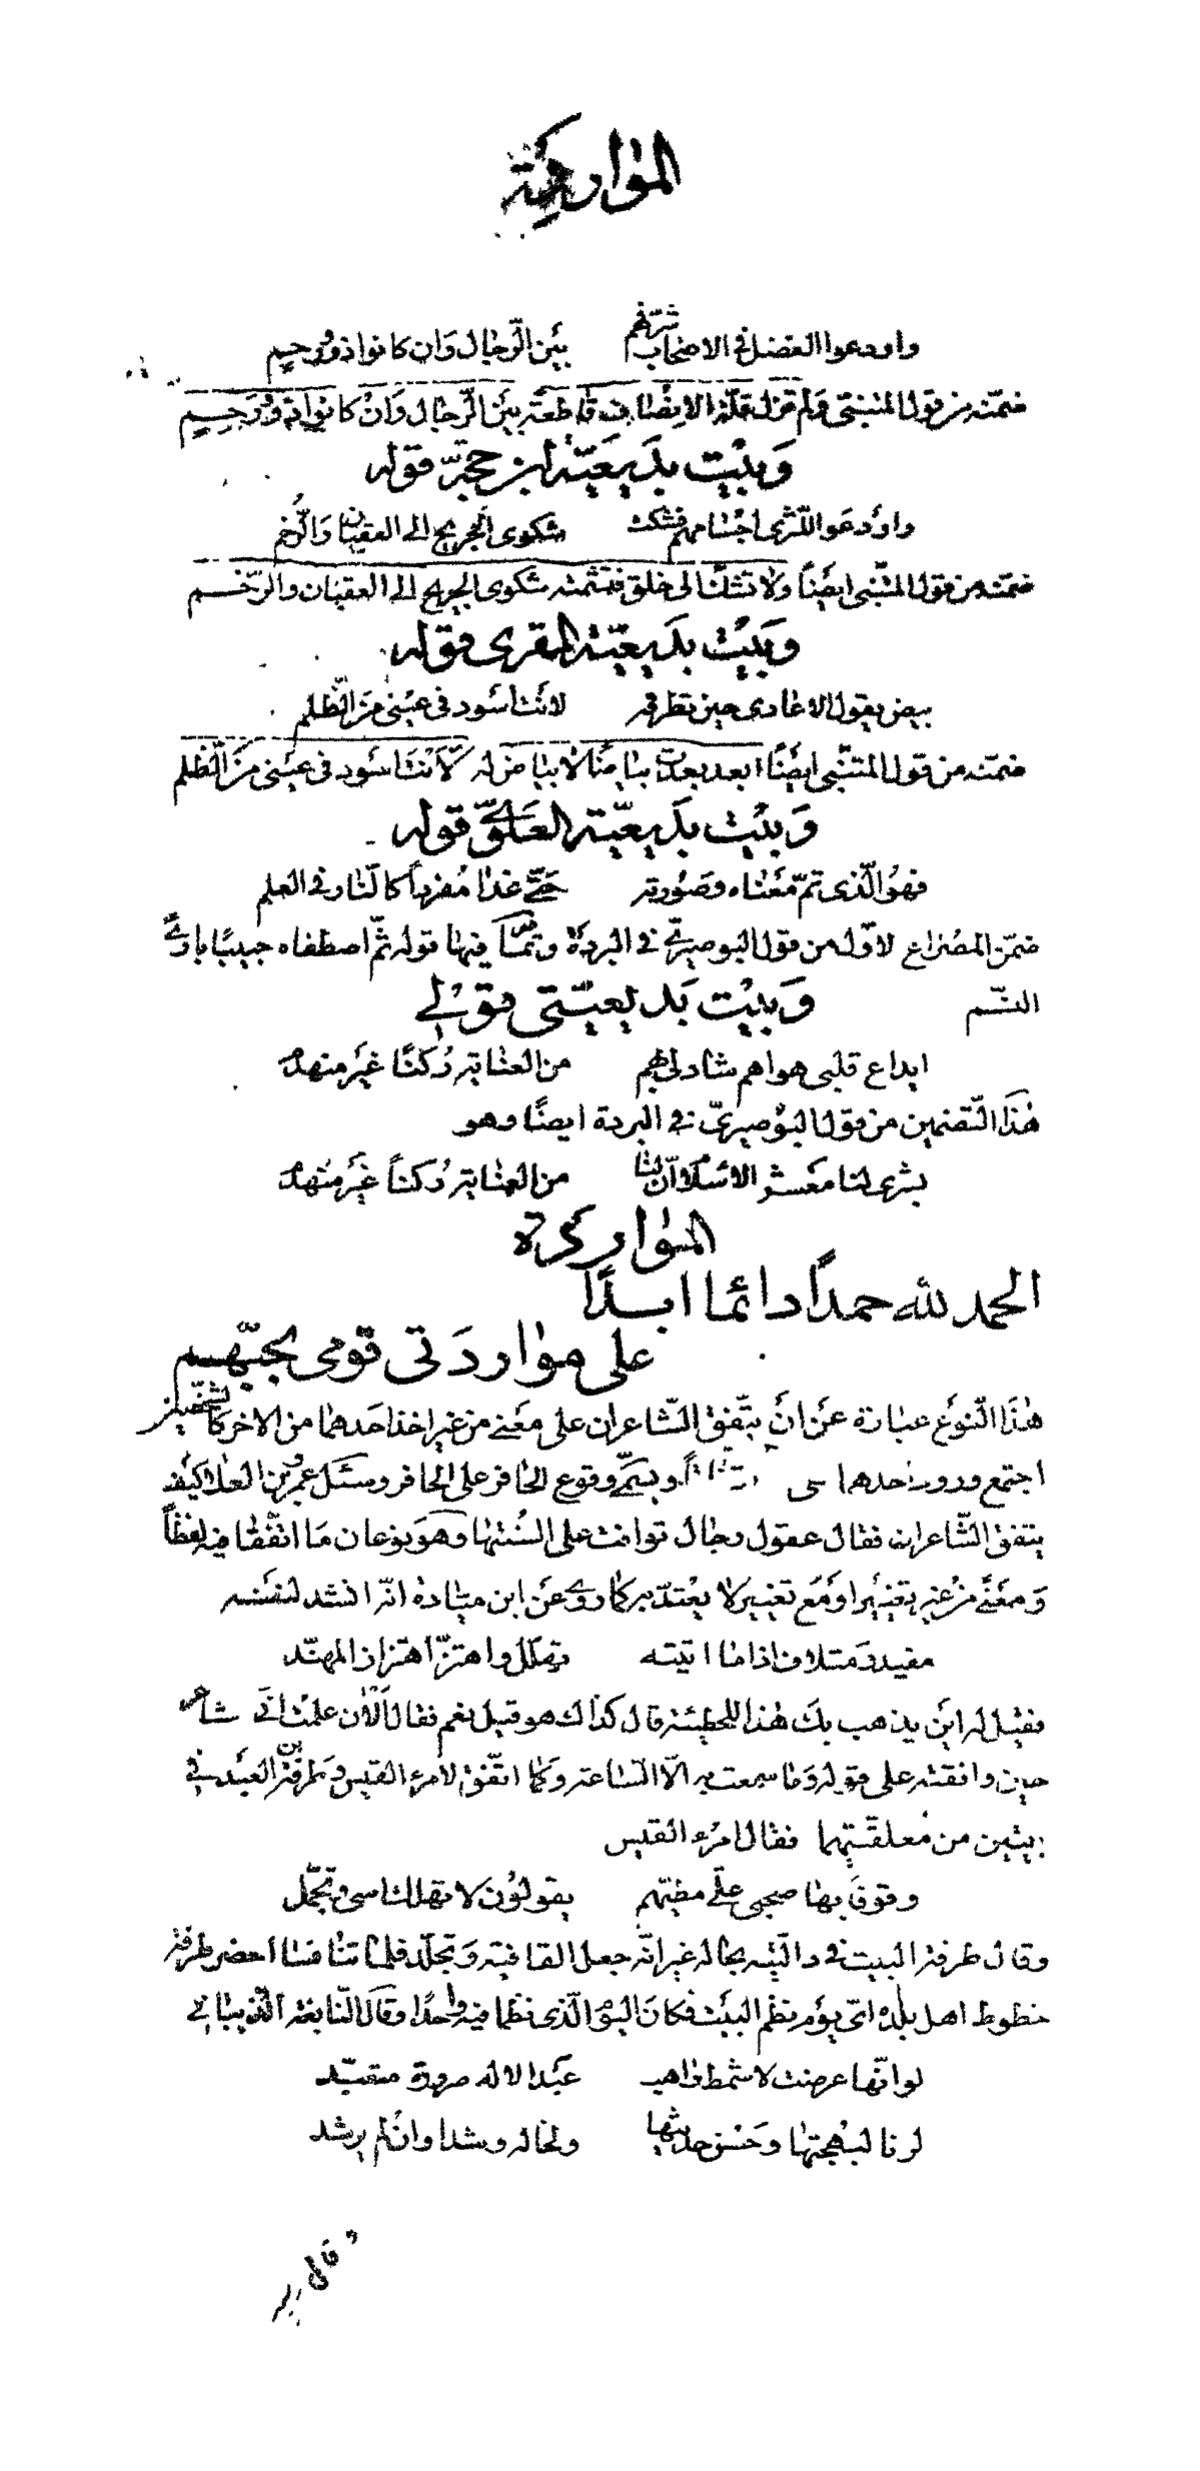 المواردة
واودعوا الفضل في الاصحاب شرفهم بين الرجال وان كانوا ذوو رحم
ضمّنه من قول المتنبي ولم تزل قلة الانصاف قاطعة بين الرجال وان كانوا ذوو رحم
وبيت بديعيّة ابن حجّة قوله
واودعوا للثرى اجسامهم فشكت شكوى الجريح الى العقبان والرخم
ضمّنه من قول المتنبي ايضًا ولا تشك الى خلق فتشمته شكوى الجريح الى العقبان والرّخم
وبيت بديعيّة المقرى قوله
بيض يقول الاعادى حين تطرقهم لانت اسود في عيني من الظّلم
ضمّنه من قول المتنبي ايضًا ابعد بعدت بياضًا لا بياض له لانت اسود في عيني من الظّلم
وبيت بديعيّة العلوي قوله
فهو الّذى تمّ معناه وصورته حتى غدا مفرداً كالنار في العلم
ضمّن المصراع لاوّل من قول البوصيريّ في البردة وتمامه فيها قوله ثمّ اصطفاه حبيبًا بارئ
النسم
وبيت بديعيّتى قولي
ايداع قلبى هواهم شاد لي بهم من العناية ركنًا غير منهدم
هذا التّضمين من قول البوصيريّ في البردة ايضًا وهو
بشرى لنا معشر الاسلام انّ لنا من العناية ركناً غير منهدم
المواردة
الحمد لله حمدًا دائما ابدًا
على مواردتى قومى بحبّهم
هذا النّوع عبارة عن ان يتّفق الشّاعران على معنى من غير اخذ احدهما من الاخر كشخصين
اجتمع ورود احدهما ويسمّى وقوع الحافر على الحافر وسئل عمرو بن العلاء كيف
يتفق الشّاعران فقال عقول رجال توافت على السنتها وهو نوعان ما اتّفقا فيه لفظاً
ومعنًى من غير تغيير او مع تغيير لا يعتدّ به كما روى عن ابن ميّادة انّه انشد لنفسه
مفيد ومتلاف اذا ما اتيته تهلّل واهتزّ اهتزاز المهنّد
فقيل له اين يذهب بك هذا للحطيئة قال كذلك هو قيل نعم فقال الان علمت اني شاعر
حين وافقته على قوله وما سمعت به الّا الساعة وكما اتّفق لامرء القيس وطرفة بن العبد في
بيتين من معلقتيهما فقال امرء القيس
وقوفا بها صحبى علىّ مطيّهم يقولون لا تهلك اسى وتجمّل
وقال طرفة البيت في داليّته بحاله غير انّه جعل القافية وتجلّد فلمّا تنافسا احضر طرفة
خطوط اهل بلده اىّ يوم نظم البيت فكان اليوم الّذى نظما فيه واحدًا وقال النّابغة الذّبيانى
لو انّها عرضت لاشمط راهب عبد الاله صرورة متعبّد
لرنا لبهجتها وحسن حديثها ولخاله رشدا وان لم يرشد
وقال